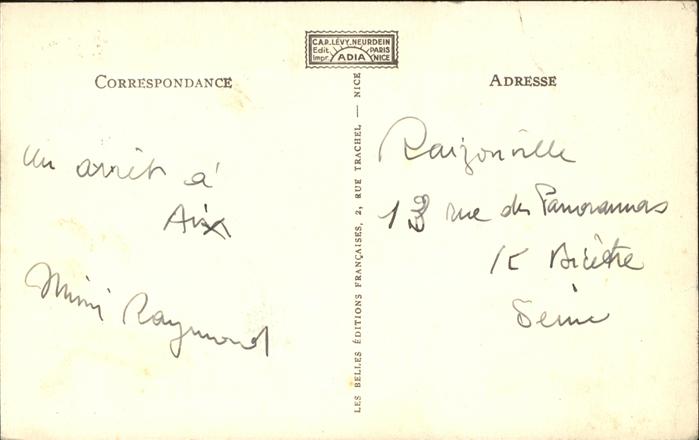 C.A.P. LÉVY. NEURDEIN
Edit. PARIS
Impr. ADIA NICE
CORRESPONDANCE
ADRESSE
Un arrêt à
Aix
Mimi Raymond
LES BELLES ÉDITIONS FRANÇAISES, 2, RUE TRACHEL — NICE
13 rue des Panoramas
K. Bicêtre
Seine